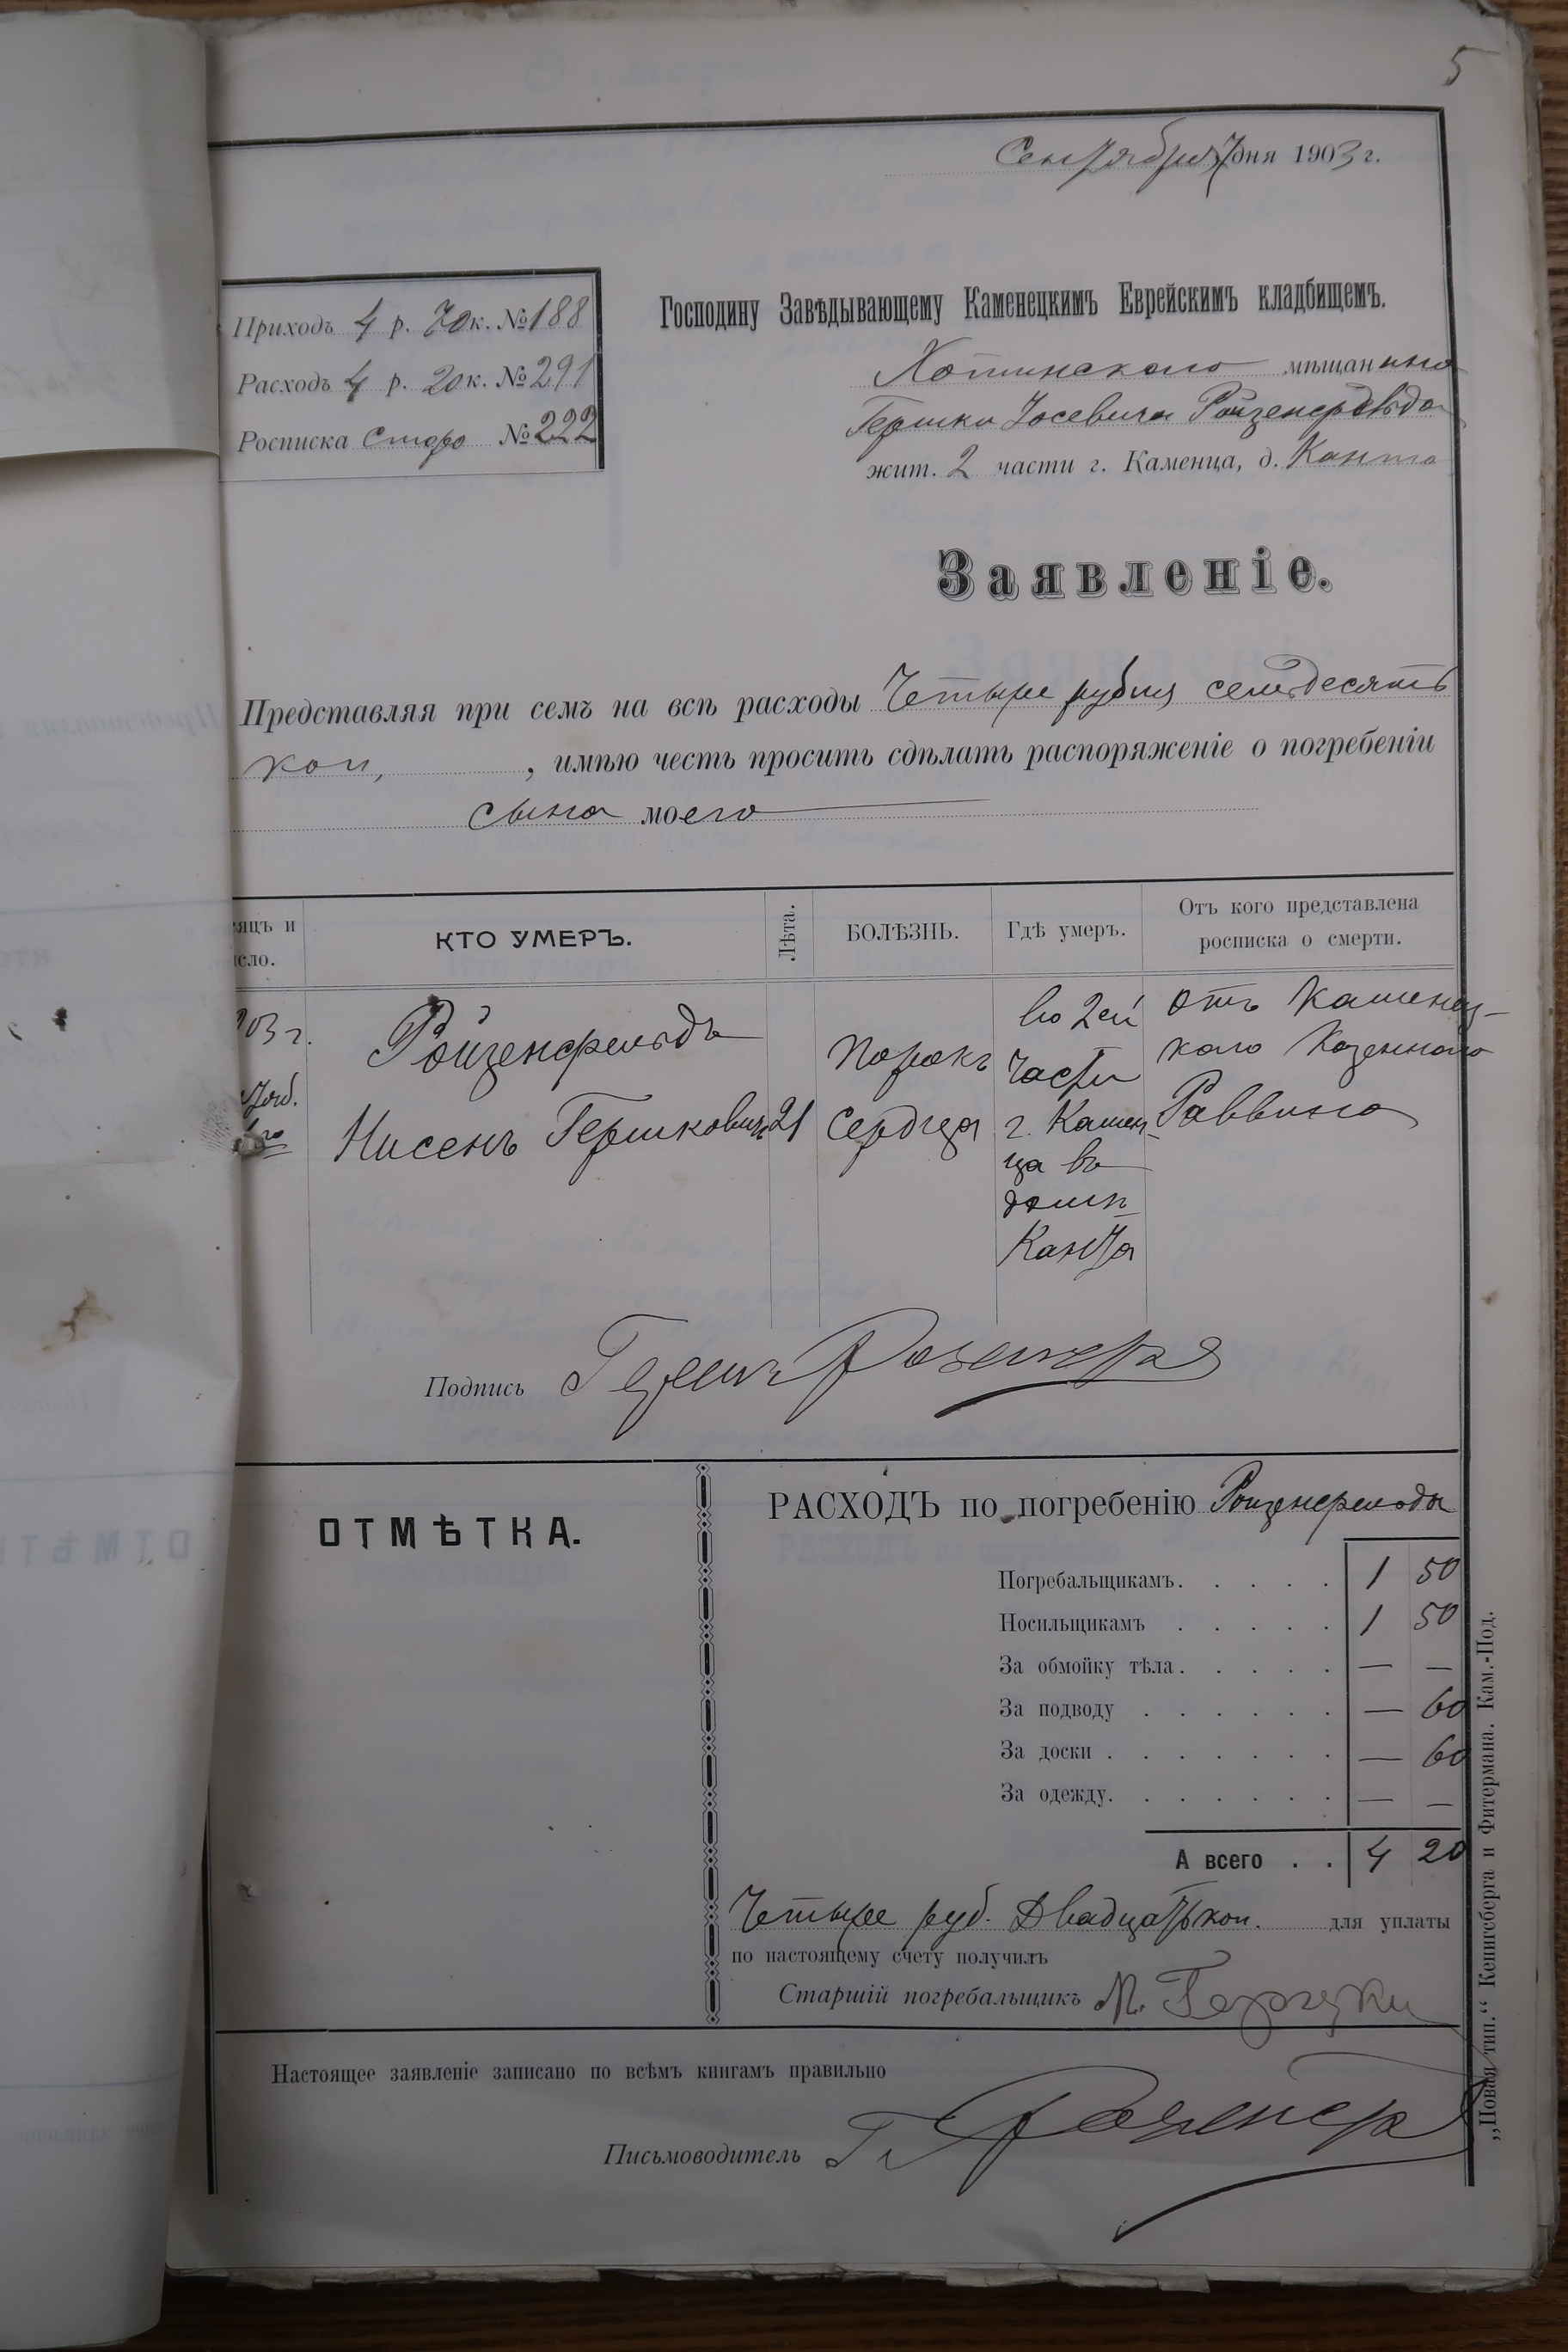 5
Сентября 7 дня 1903 г.
Приходъ 4 р. 70 к. № 188
Расходъ 4 р. 20 к. № 291
Росписка Старо № 222
Господину Завѣдывающему Каменецкимъ Еврейскимъ кладбищемъ.
Хотинскаго мѣщанина
Гершки Іосевича Ройзенфельда
жит. 2 части г. Каменца, д. Канта
Заявленіе.
Представляя при семъ на всѣ расходы Четыре рубля семьдесятъ
коп, , имѣю честь просить сдѣлать распоряженіе о погребеніи
сына моего
яцъ и
сло.
КТО УМЕРЪ.
Лѣта.
БОЛѢЗНЬ.
Гдѣ умеръ.
Отъ кого представлена
росписка о смерти.
903 г.
Ройзенфельдъ
Нисенъ Гершковичъ
21
Порокъ
Сердца
во 2ей
части
г. Камен
ца въ
домѣ
Канта
отъ Каменец-
каго Казеннаго
Раввина
Подпись
ОТМѢТКА.
РАСХОДЪ по погребенію Ройзенфельда
Погребальщикамъ. . . . . 1 50
Носильщикамъ . . . . . 1 50
За обмойку тѣла. . . . . — —
За подводу . . . . . . — 60
За доски . . . . . . . — 60
За одежду. . . . . . . — —
А всего . . 4 20
Четыре руб. Двадцать коп. для уплаты
по настоящему счету получилъ
Старшій погребальщикъ М.
Настоящее заявленіе записано по всѣмъ книгамъ правильно
Письмоводитель
„Новая тип.“ Кенигсберга и Фитермана. Кам.-Под.